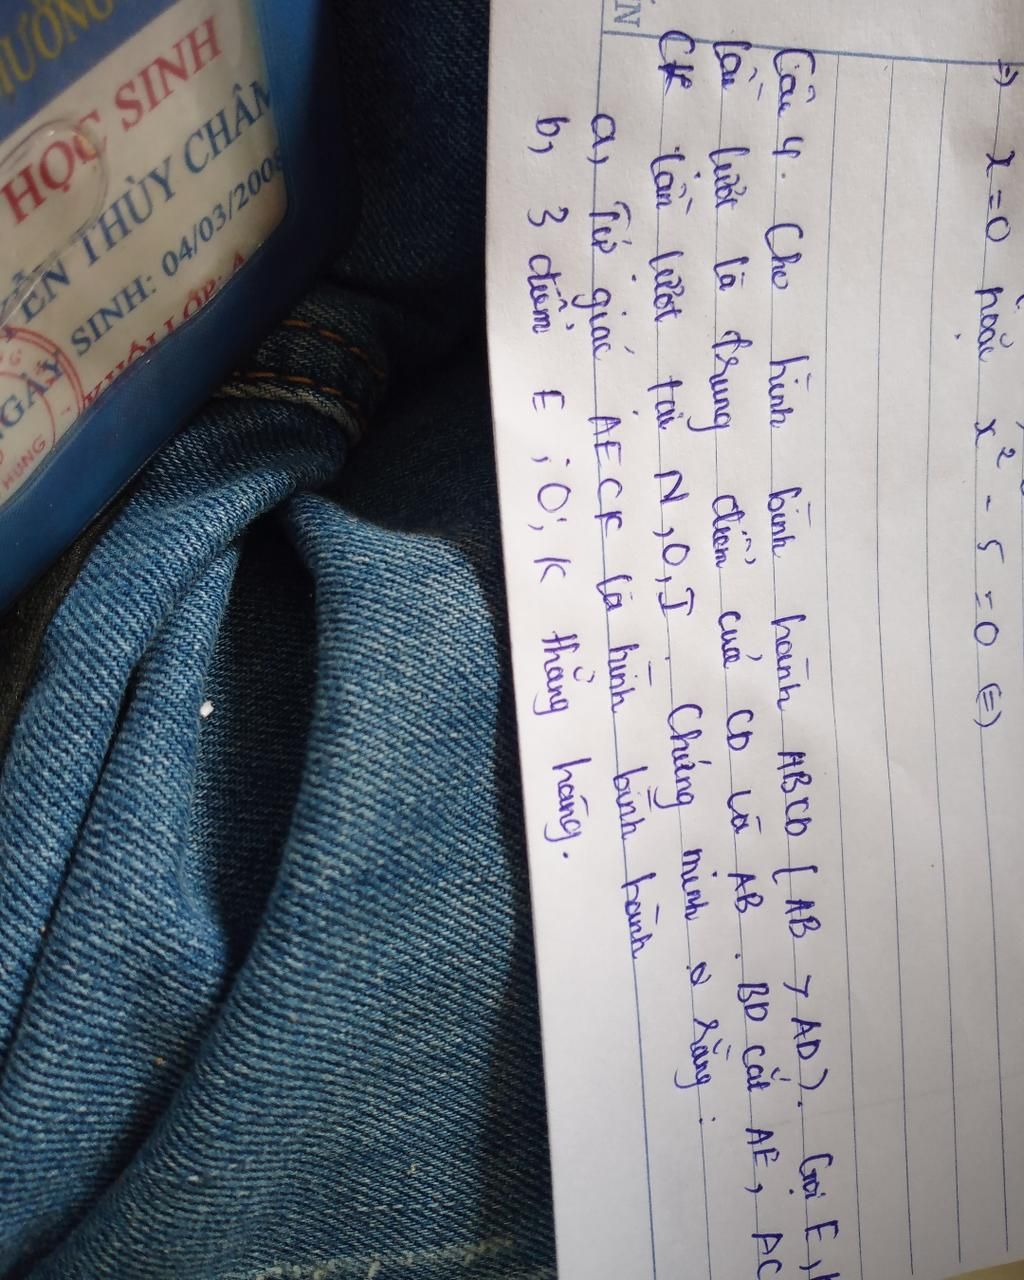 =) x=0 hoặc x² - 5 =0 (=)
Câu 4. Cho hình bình hành ABCD ( AB > AD). Gọi E,
lần lượt là trung điểm của CD và AB. BD cắt AE, AC
CK lần lượt tại N,O,I. Chứng minh rằng:
a, Tứ giác AECK là hình bình hành
b, 3 điểm E; O; K thẳng hàng.
HỌC SINH
THÙY CHÂM
SINH: 04/03/200
LỚP: A